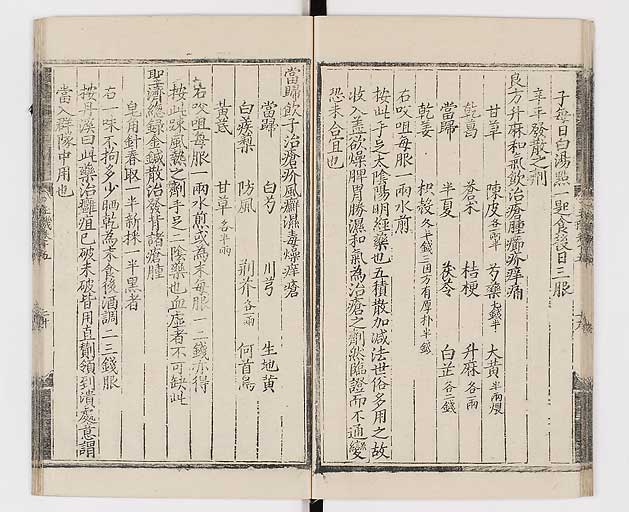 子每日白湯點一匙食後日三服
辛平發散之劑
良方升麻和氣飲治瘡腫癤疥痒痛
甘草 陳皮各兩半 芍藥七錢半 大黄半兩煨
乾葛 蒼朮 桔梗 升麻各一兩
當歸 半夏 茯苓 白芷各二錢
乾姜 枳殻各半錢三因方有厚朴半錢
右㕮咀每服一兩水煎
按此手足太陰陽明經藥也五積散加減法世俗多用之故
收入盖欲燥脾胃勝濕和氣為治瘡之劑然臨證而不通變
恐未合宜也
當歸飲子治瘡疥風癬濕毒燥痒瘡
當歸 白芍 川芎 生地黄
白蒺藜 防風 荆芥各一兩 何首烏
黄芪 甘草各半兩
右㕮咀每服一兩水煎或為末每服一二錢亦得
按此踈風熱之劑手足二陰藥也血虚者不可缺此
聖濟總録金鍼散治發背諸瘡腫
皂角針春取一半新採一半黑者
右一味不拘多少晒乾為末食後酒調二三錢服
按丹溪曰此藥治癰疽已破未破皆用直劑領到潰處意謂
當入群隊中用也